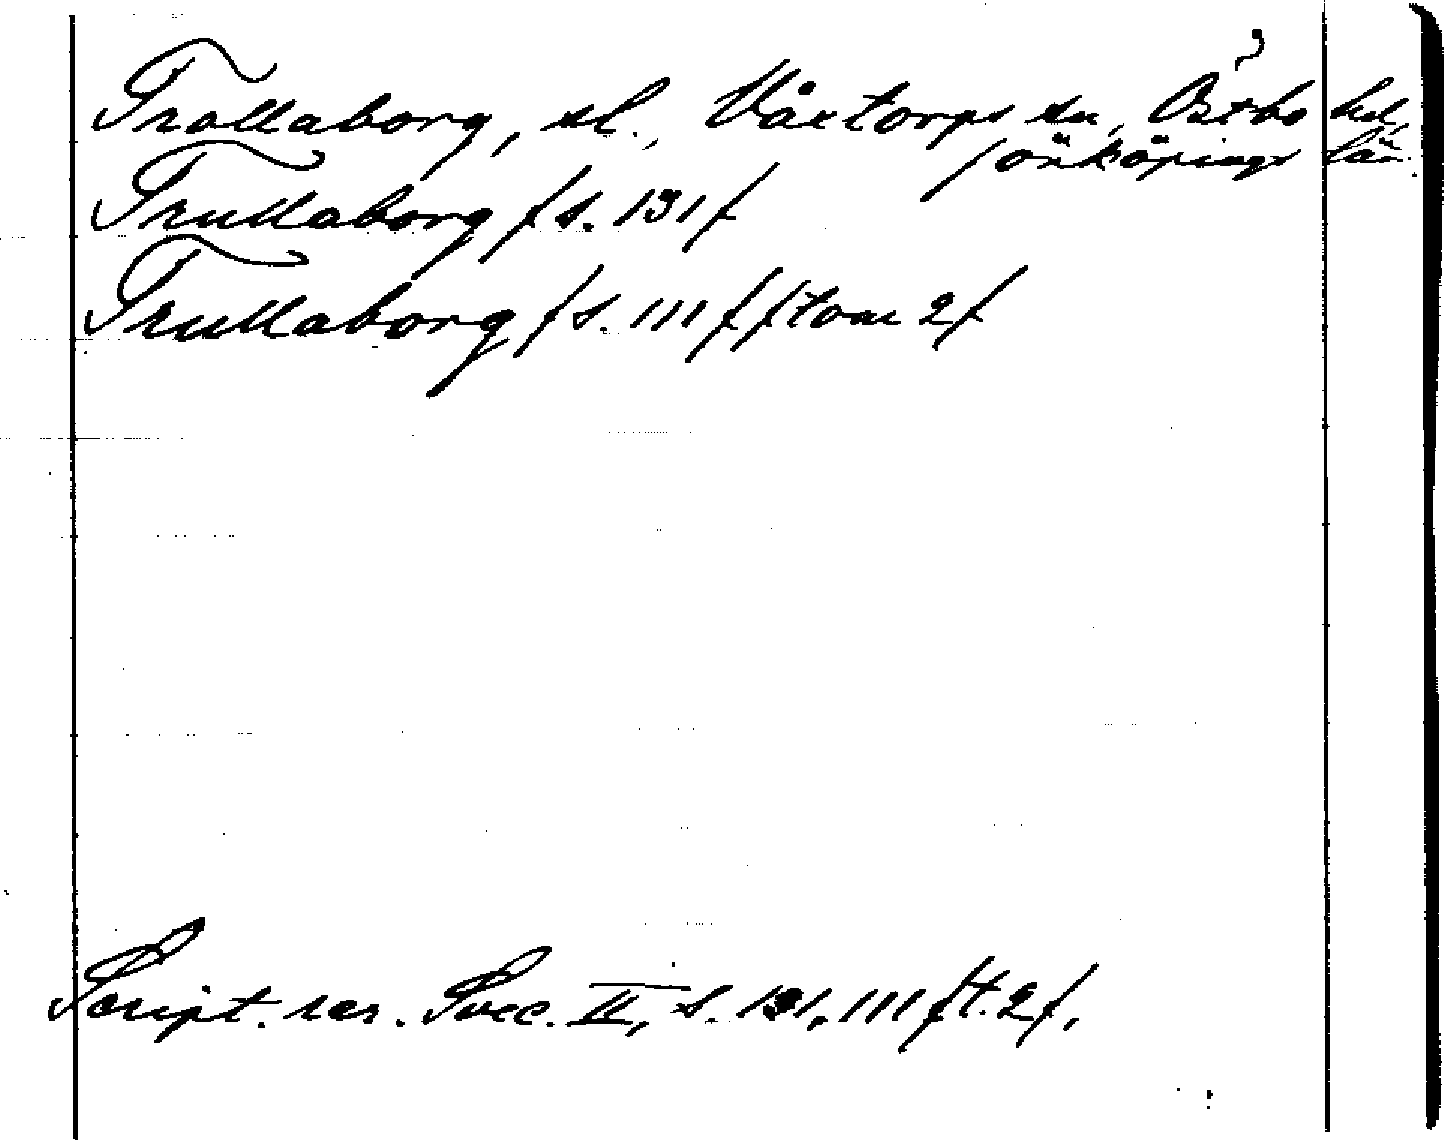 Trollaborg, sl., Våxtorps sn, Östbo hd,
Jönköpings län.
Trullaborg /s. 131/
Trullaborg /s. 111/ /tom 2/
Script. rer. Svec. II, s. 131, 111 /t. 2/.